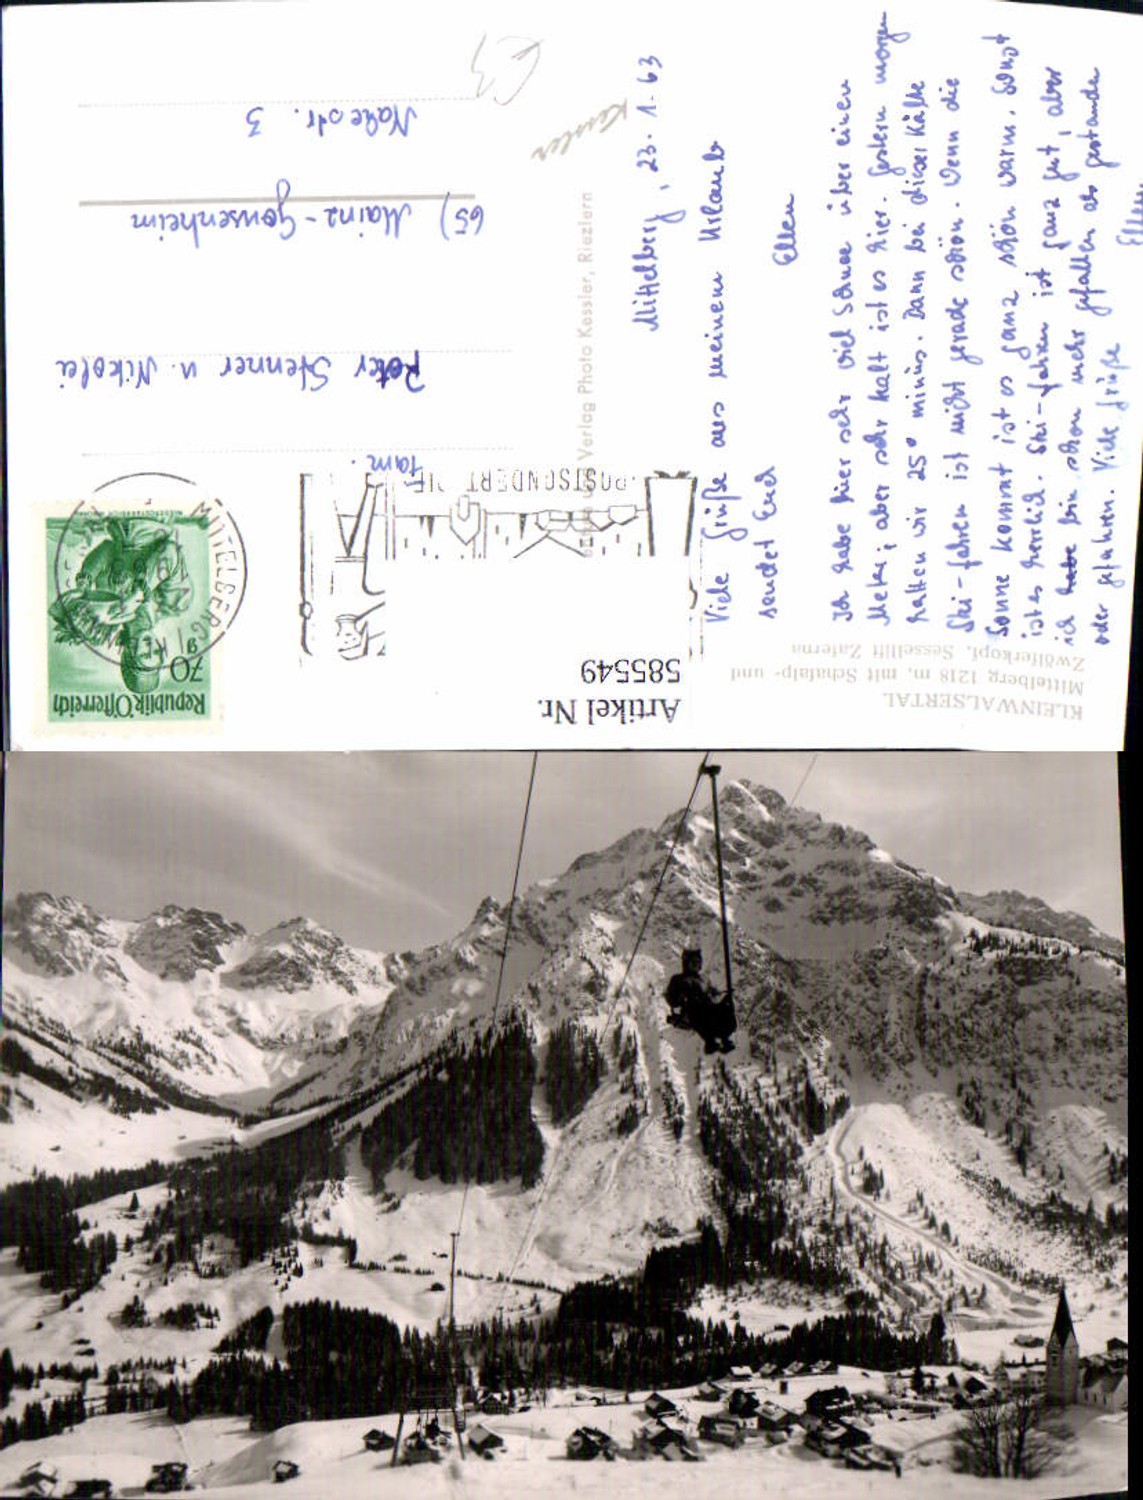 KLEINWALSERTAL
Mittelberg 1218 m, mit Schafalp- und
Zwölferkopf. Sessellift Zaferna
Artikel Nr.
585549
Republik Österreich
70
MITTELBERG
POSTSONDERTDIE
Verlag Photo Kessler, Riezlern
Kessler
Fam.
Peter Stenner u. Nikolei
65) Mainz-Gonsenheim
Nahestr. 3
Mittelberg, 23.1.63
Viele Grüße aus meinem Urlaub
sendet Euch
Ellen
Ich habe hier sehr viel Schnee über einen
Meter, aber sehr kalt ist es hier. Gestern morgen
hatten wir 25° minus. Dann bei dieser Kälte
Ski-fahren ist nicht gerade schön. Wenn die
Sonne kommt ist es ganz schön warm. Sonst
ist es herrlich. Ski-fahren ist ganz gut, aber
ich habe bin schon mehr gefallen als gestanden
oder gefahren. Viele Grüße
Ellen